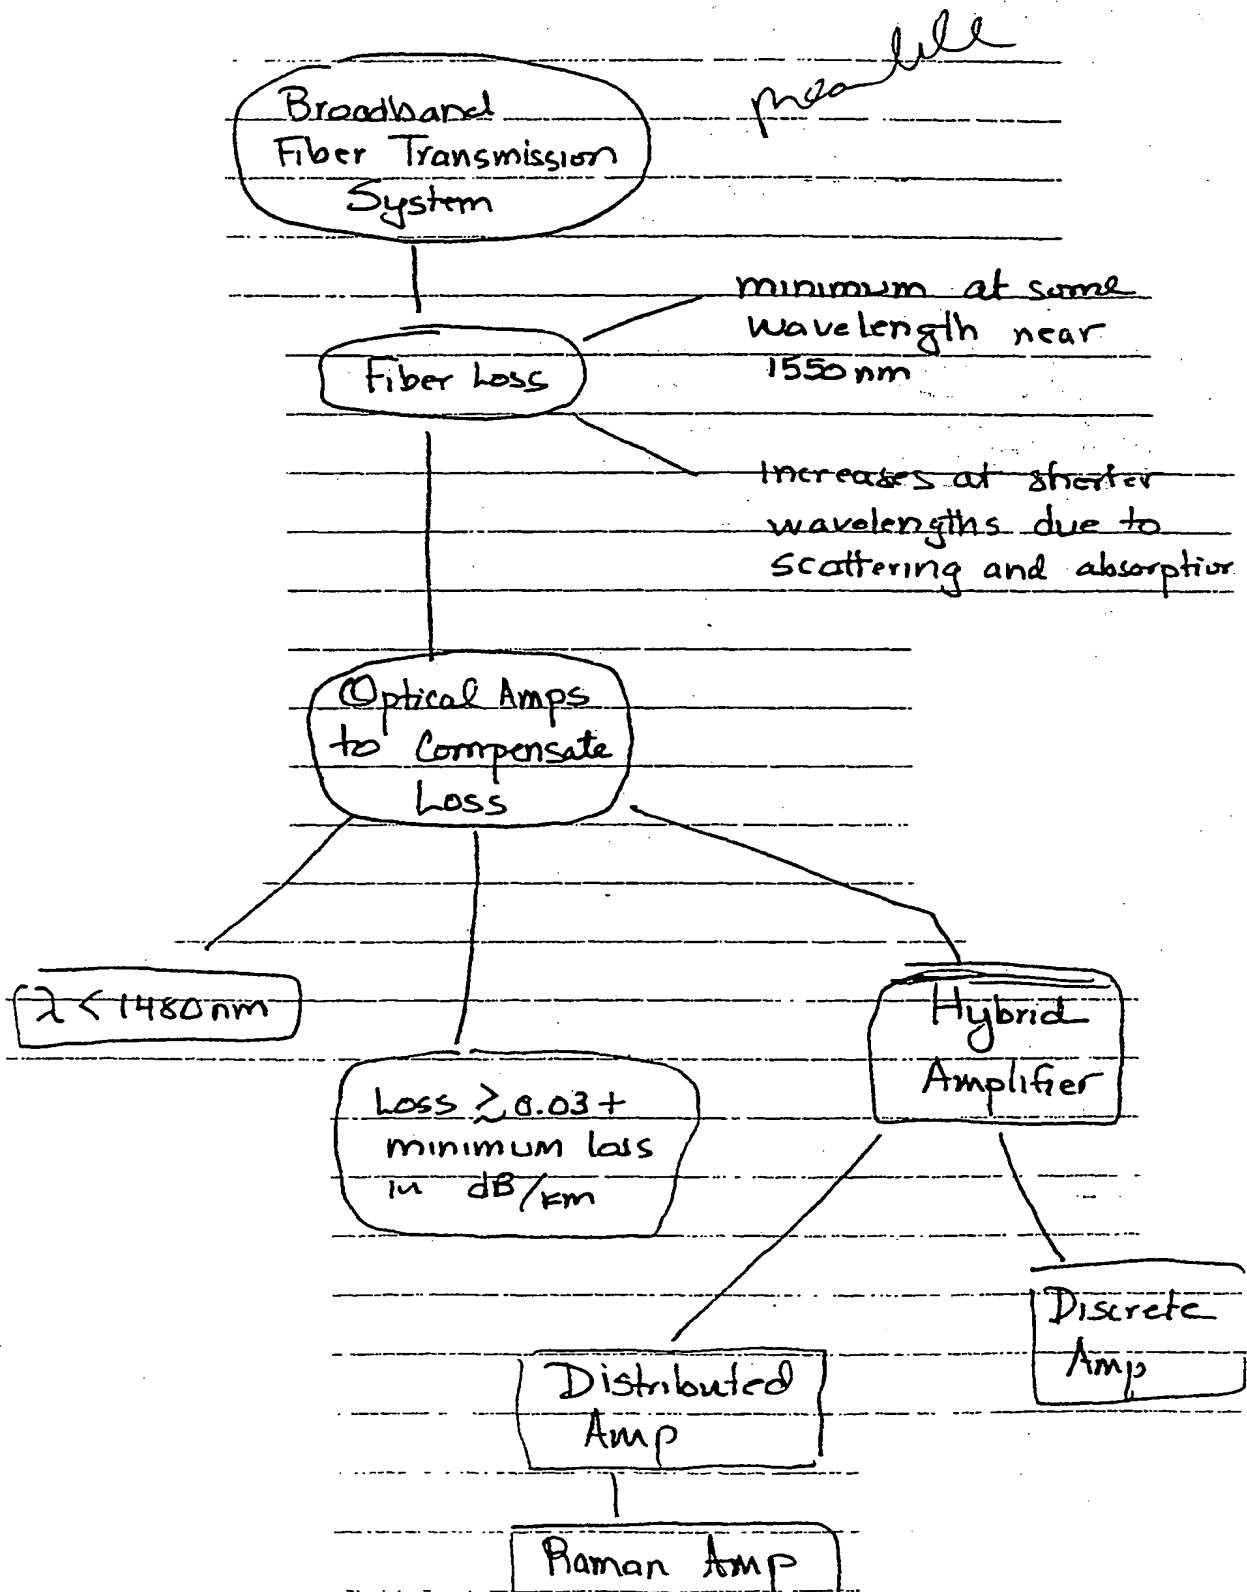 preamble
Broadband
Fiber Transmission
System
minimum at some
wavelength near
1550 nm
Fiber Loss
increases at shorter
wavelengths due to
scattering and absorption
Optical Amps
to Compensate
Loss
λ < 1480 nm
Hybrid
Amplifier
Loss ≳ 0.03 +
minimum loss
in dB/km
Discrete
Amp
Distributed
Amp
Raman Amp